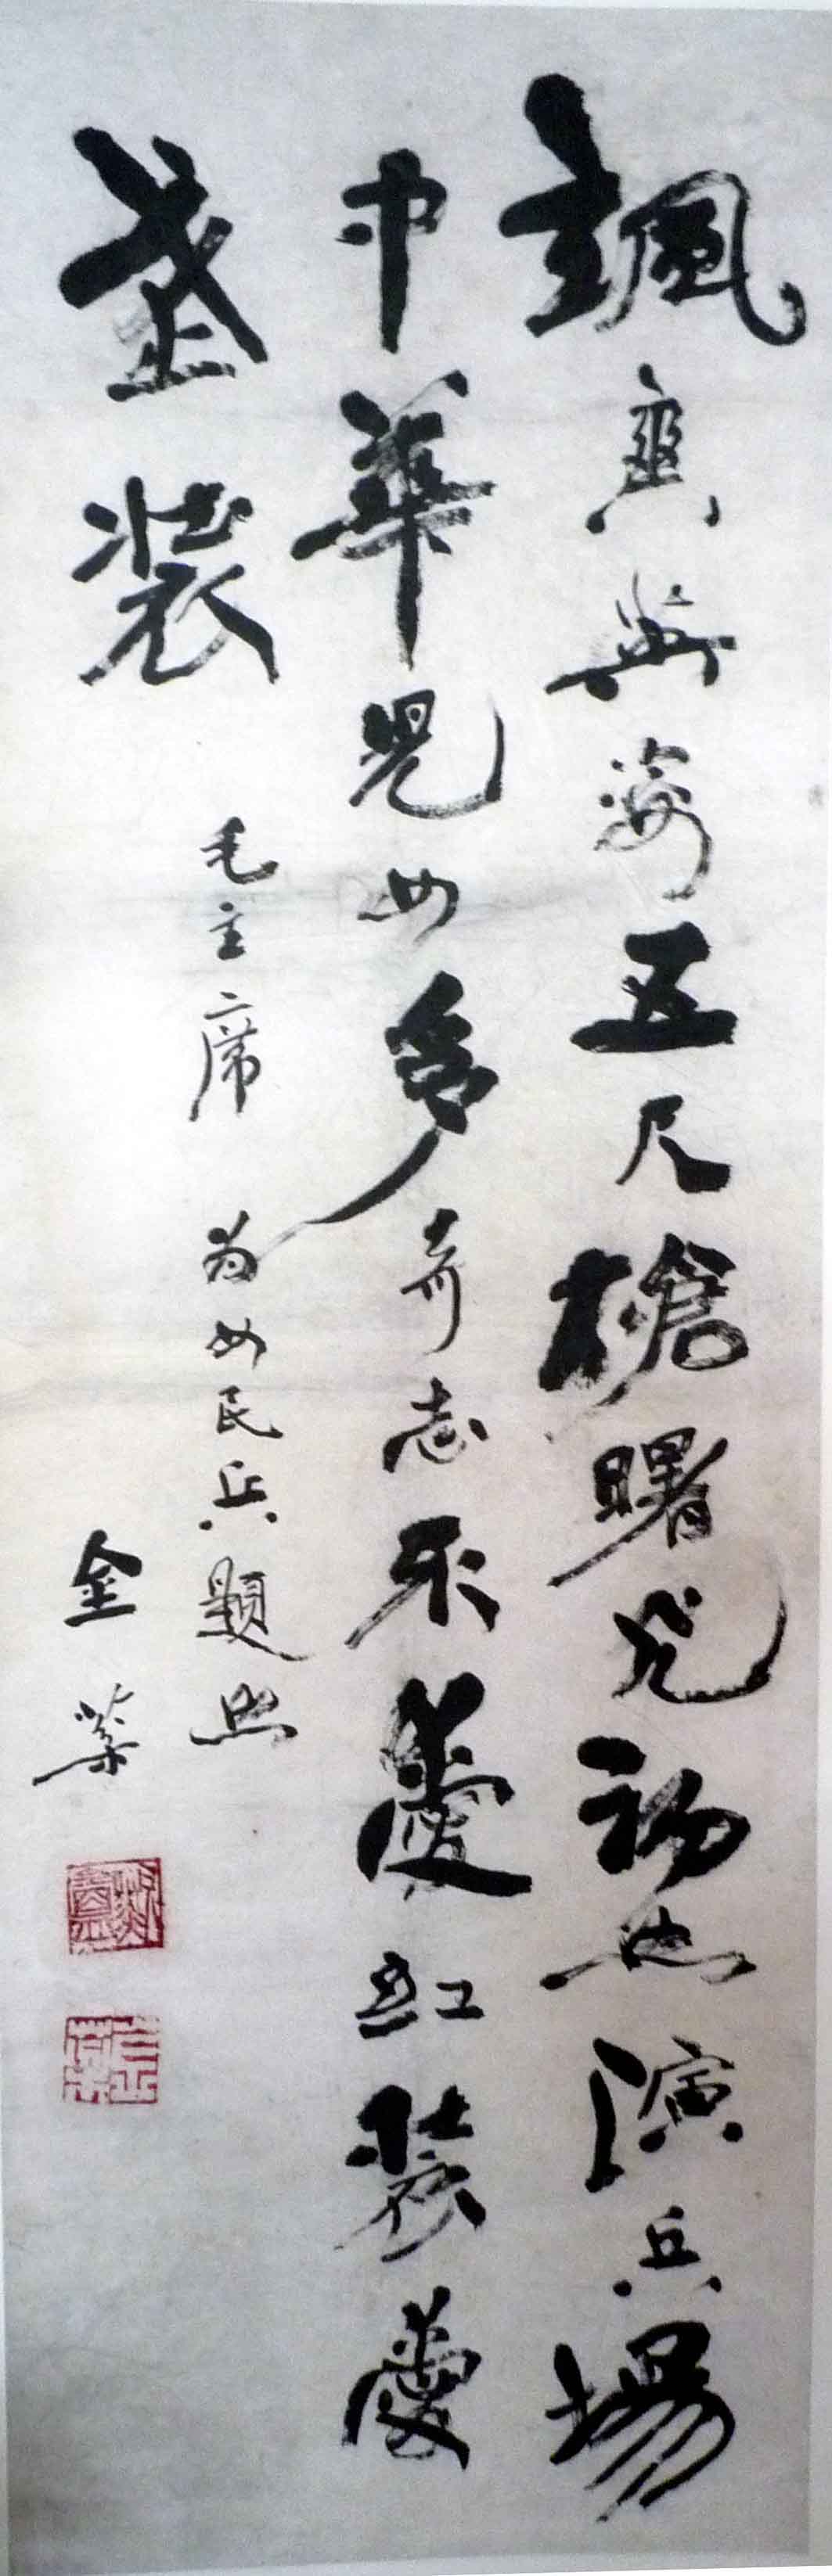 颯爽英姿五尺槍曙光初照演兵場
中華兒女多奇志不愛紅装愛
武装
毛主席 为女民兵題照
金